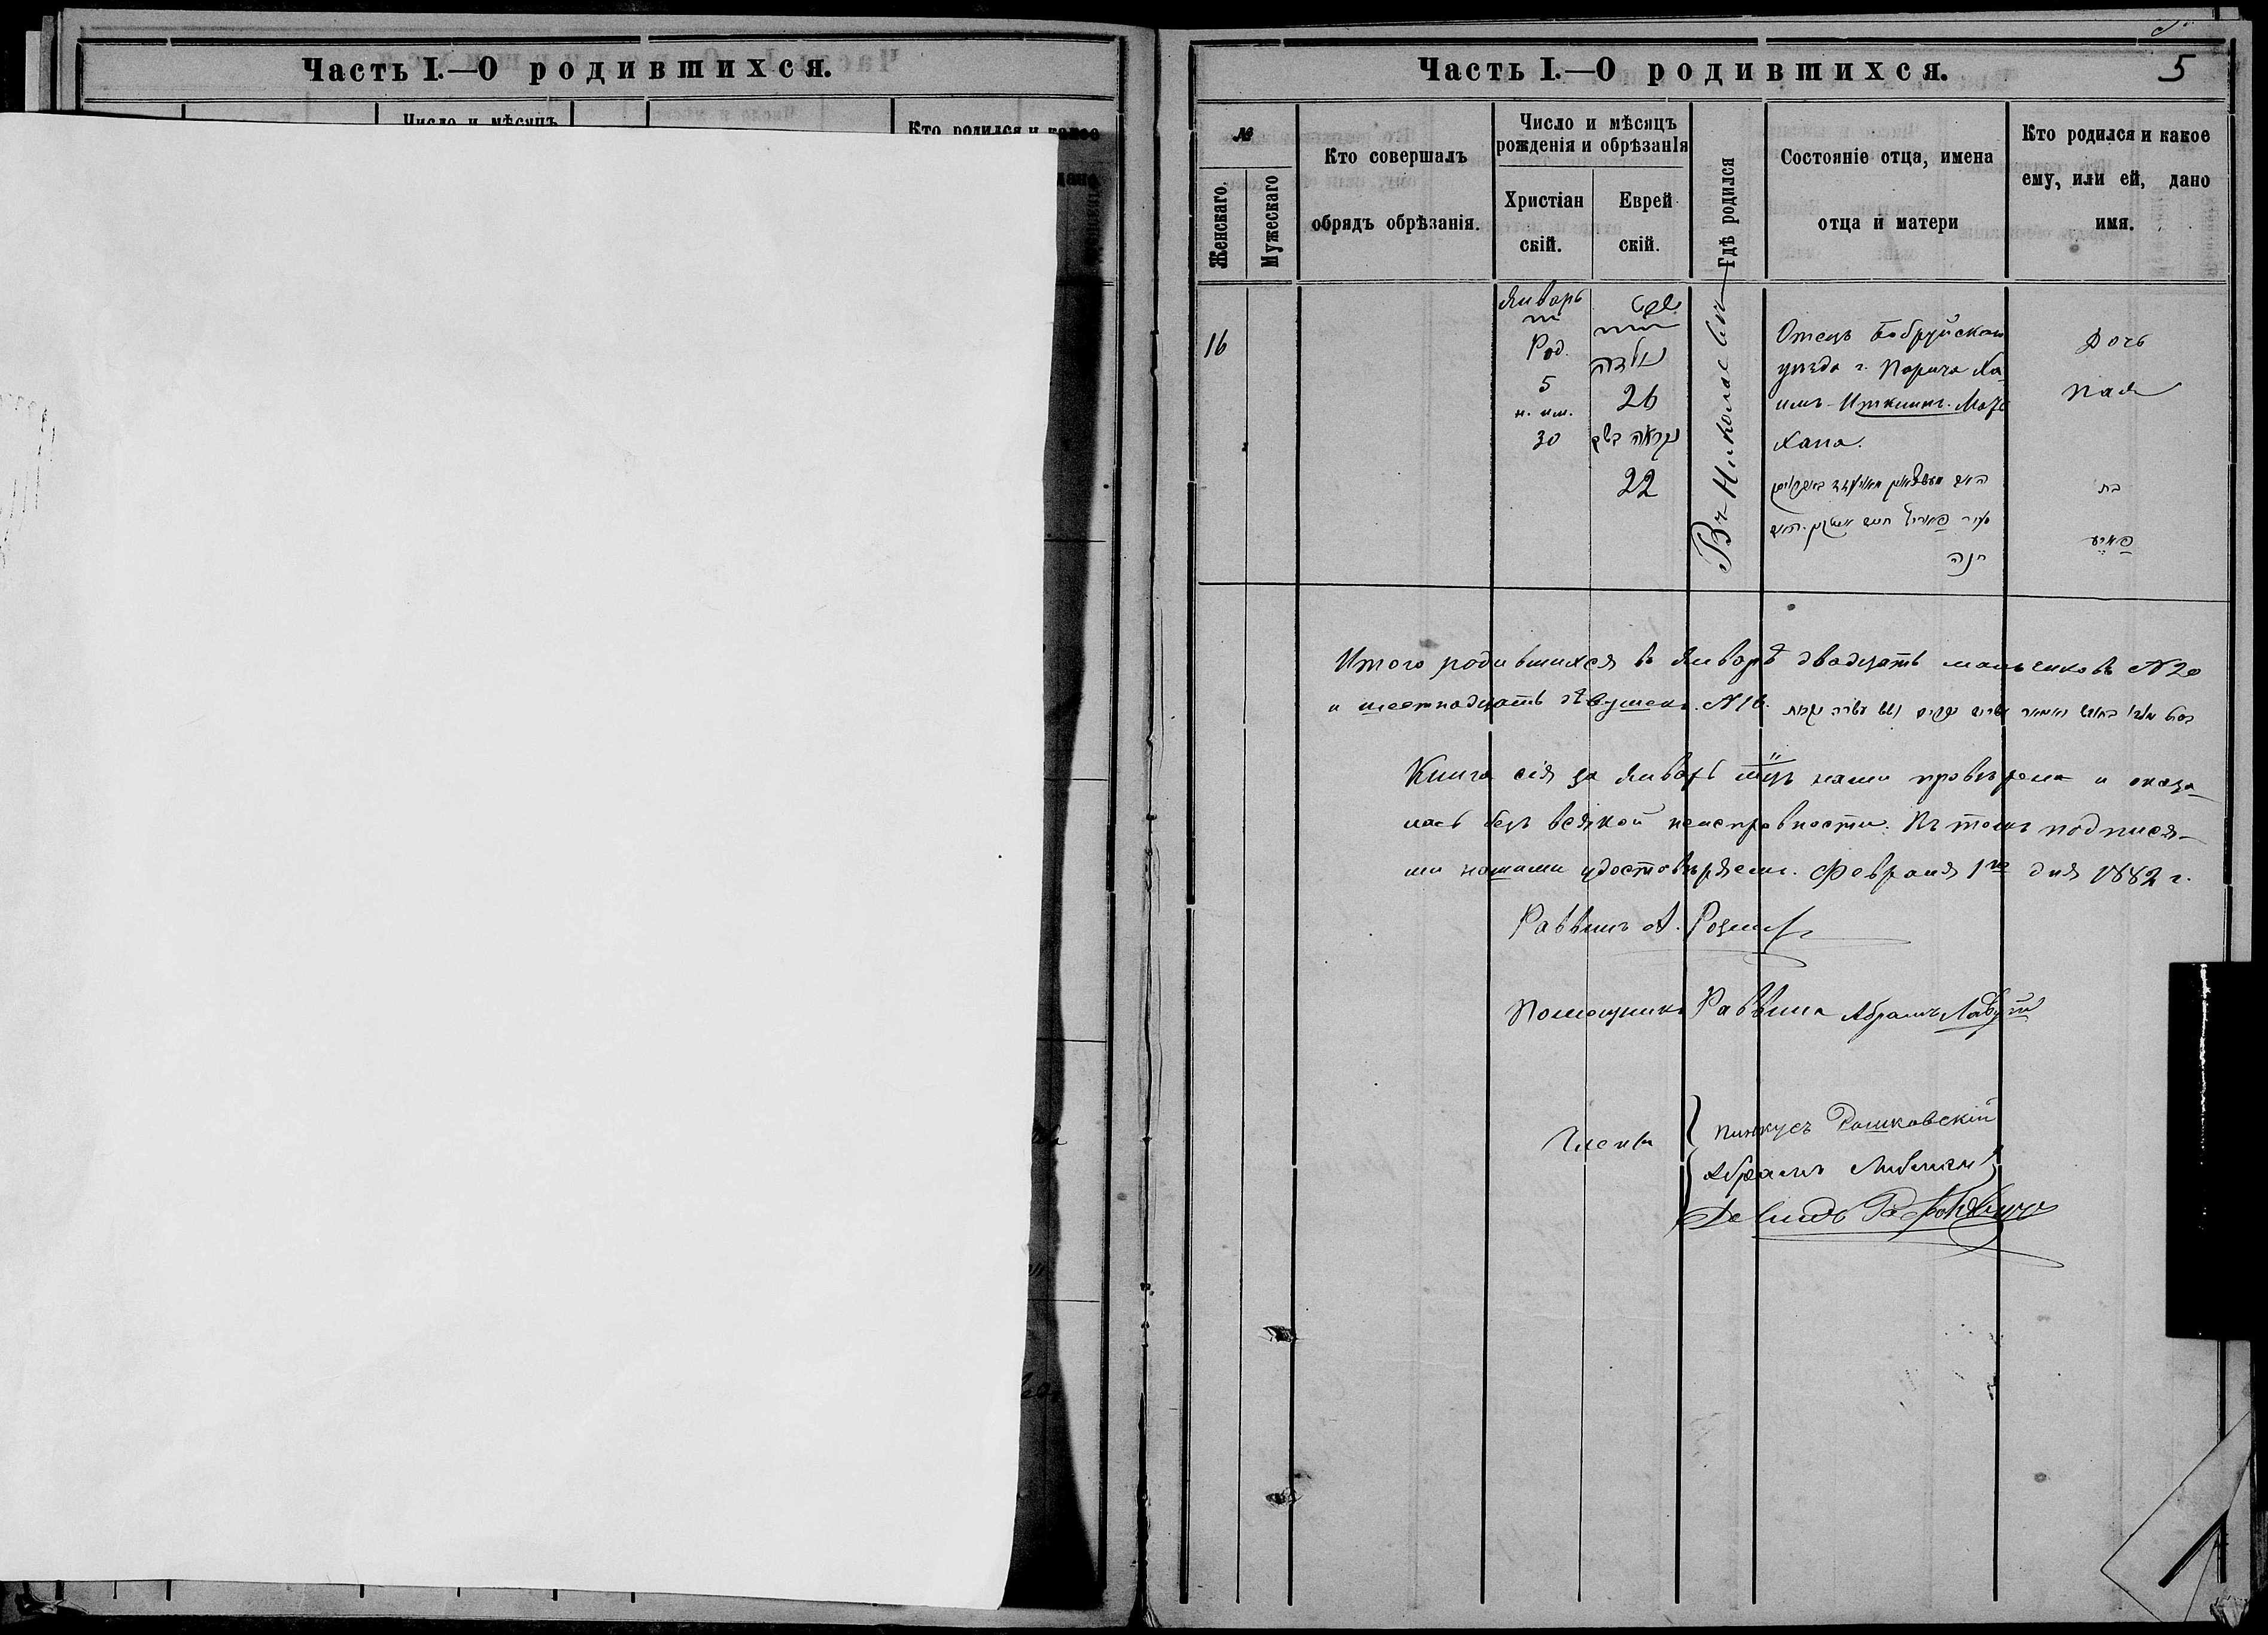 Часть I.—О родившихся.
Число и мѣсяцъ
Кто родился и какое
дано
Часть I.—О родившихся.
5
№
Женскаго.
Мужескаго
Кто совершалъ
обрядъ обрѣзанія.
Число и мѣсяцъ
рожденія и обрѣзанія
Христіан
скій.
Еврей
скій.
Гдѣ родился
Состояніе отца, имена
отца и матери
Кто родился и какое
ему, или ей, дано
имя.
16
Январь
Род.
5
н. им.
30
שבט
נולדה
26
נקראה בשם
22
Въ Николаевѣ
Отецъ Бобруйскаго
уѣзда г. Парича Ха-
имъ Иткинъ. Мать
Хана.
חנה
Дочь
Пая
בת
פאיע
Итого родившихся въ Январѣ двадцать мальчиковъ №20
и шестнадцать дѣвушекъ. №16.
Книга сія за Январь мцъ нами провѣрена и оказа-
лась безъ всякой неисправности. Въ томъ подпися-
ми нашими удостовѣряемъ. Февраля 1го дня 1882 г.
Раввинъ А.
Помощникъ Раввина Абрамъ
Члены
Пинкусъ Рашковскій
Абрамъ
Давидъ